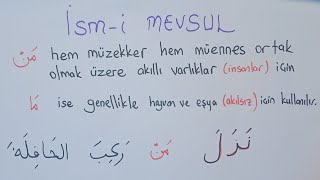 İsm-i MEVSUL
مَنْ hem müzekker hem müennes ortak
olmak üzere akıllı varlıklar (insanlar) için
مَا ise genellikle hayvan ve eşya (akılsız) için kullanılır.
نَزَلَ مَنْ رَكِبَ الحَافِلَةَ